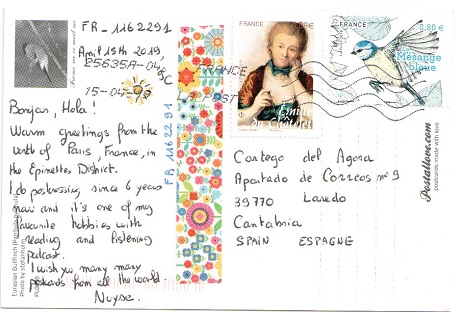 FR-1162291
April 15th 2019,
25635A-04
15-04-
FRANCE
LA POSTE
Bonjour, Hola!
Warm greetings from the
north of Paris, France, in
the Epinettes District.
I do postcrossing since 6 years
now and it's one of my
favourite hobbies with
reading and listening
podcast.
I wish you many many
postcards from all the world.
Nuyse.
FR 1162291
FRANCE
Émilie du Châtelet
FRANCE
0,80 €
Mésange
bleue
Contego del Agora
Apartado de Correos nº 9
39770 Laredo
Cantabria
SPAIN ESPAGNE
Postallove.com
postcards made with love
Eurasian Bullfinch
Photo by